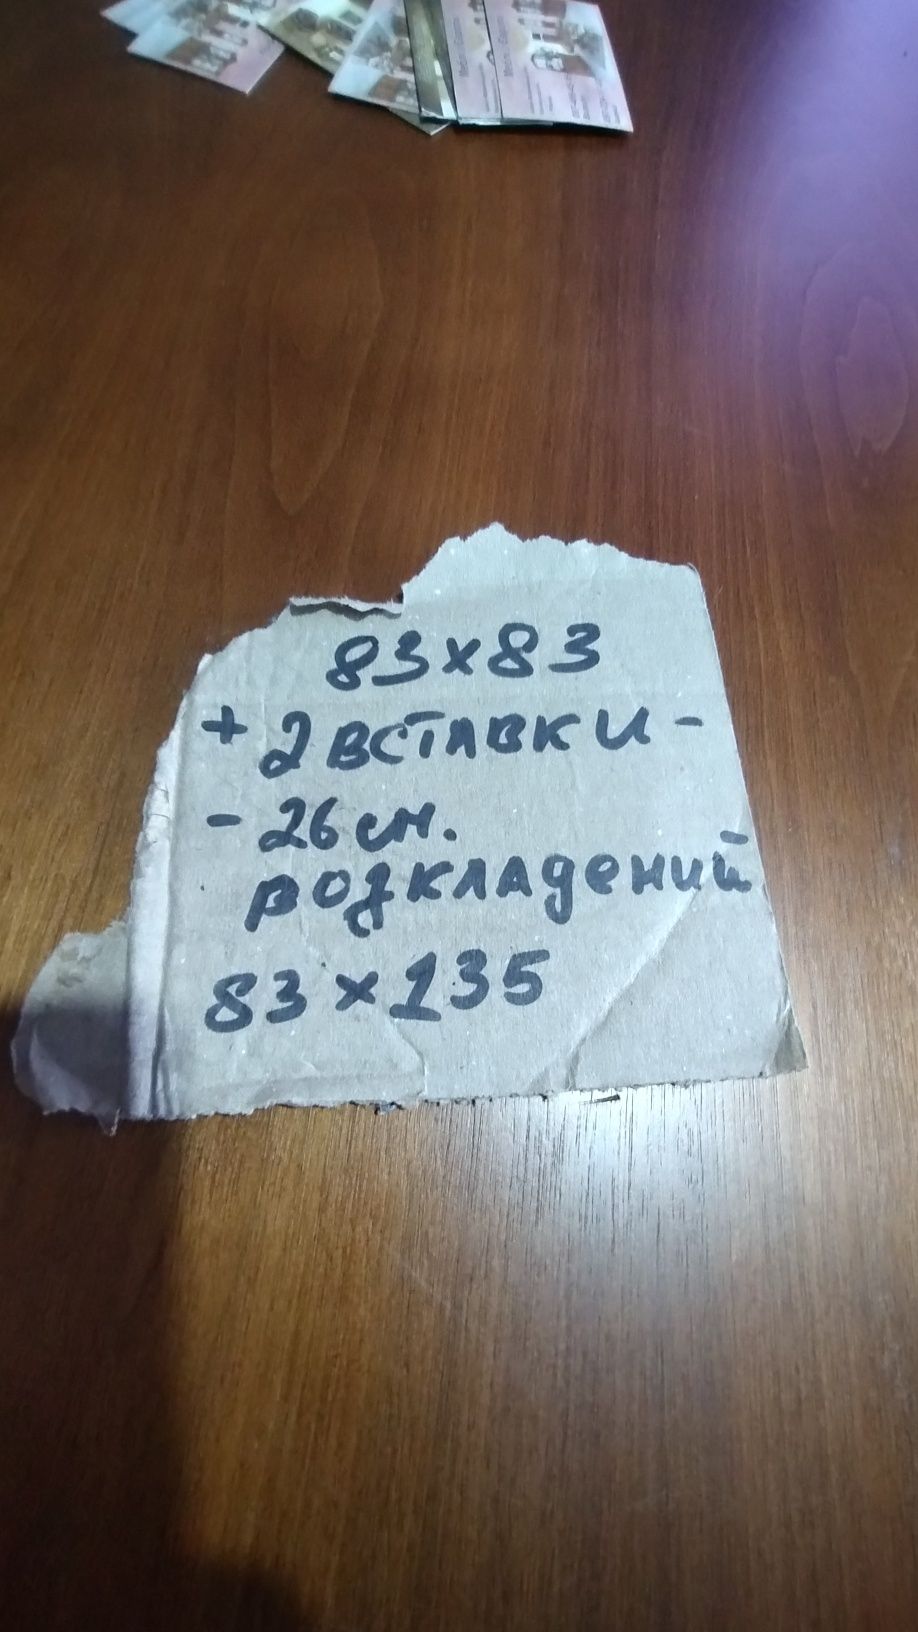 83x83
+ 2 вставки -
- 26 см.
розкладений
83 x 135